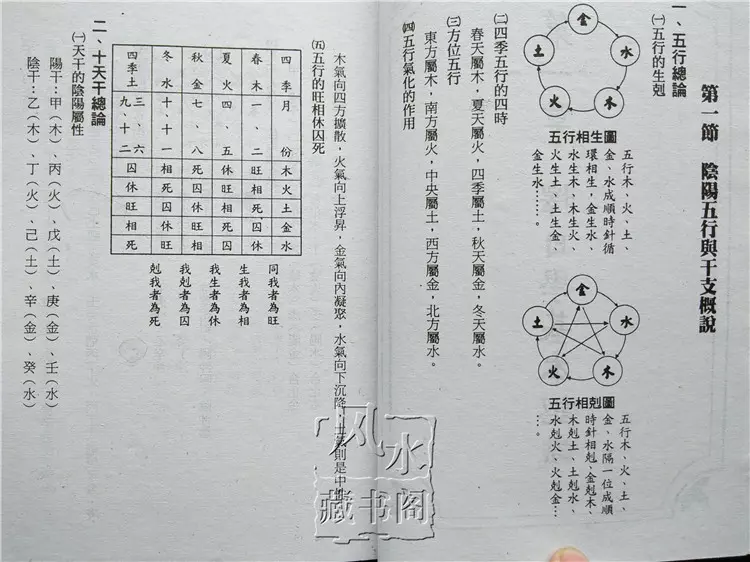 第一節　陰陽五行與干支概說
一、五行總論
㈠五行的生剋
金
水
木
火
土
五行相生圖
五行木、火、土、
金、水成順時針循
環相生，金生水、
水生木、木生火、
火生土、土生金、
金生水……。
金
水
木
火
土
五行相剋圖
五行木、火、土、
金、水隔一位成順
時針相剋，金剋木、
木剋土、土剋水、
水剋火、火剋金…
…。
㈡四季五行的四時
春天屬木，夏天屬火，四季屬土，秋天屬金，冬天屬水。
㈢方位五行
東方屬木，南方屬火，中央屬土，西方屬金，北方屬水。
㈣五行氣化的作用
木氣向四方擴散，火氣向上浮昇，金氣向內凝聚，水氣向下沉降，土氣則是中
㈤五行的旺相休囚死
四季 月份 木 火 土 金 水
春木 一、二 旺 相 死 囚 休
夏火 四、五 休 旺 相 死 囚
秋金 七、八 死 囚 休 旺 相
冬水 十、十一 相 死 囚 休 旺
四季土 三、六 九、十二 囚 休 旺 相 死
同我者為旺
生我者為相
我生者為休
我剋者為囚
剋我者為死
二、十天干總論
㈠天干的陰陽屬性
陽干：甲（木）、丙（火）、戊（土）、庚（金）、壬（水）
陰干：乙（木）、丁（火）、己（土）、辛（金）、癸（水）
风水
藏书阁